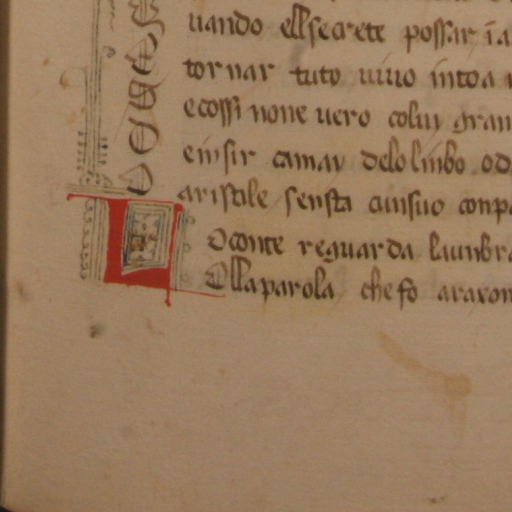 uando ellsecrete possar ia
tornar tuto uiuo intoa
ecossi none uero coluy gran
einsir camay delo linbo od
aristile sensta auisuo conpa
L Oconte reguarda launbra
Ella parola che fo araxon